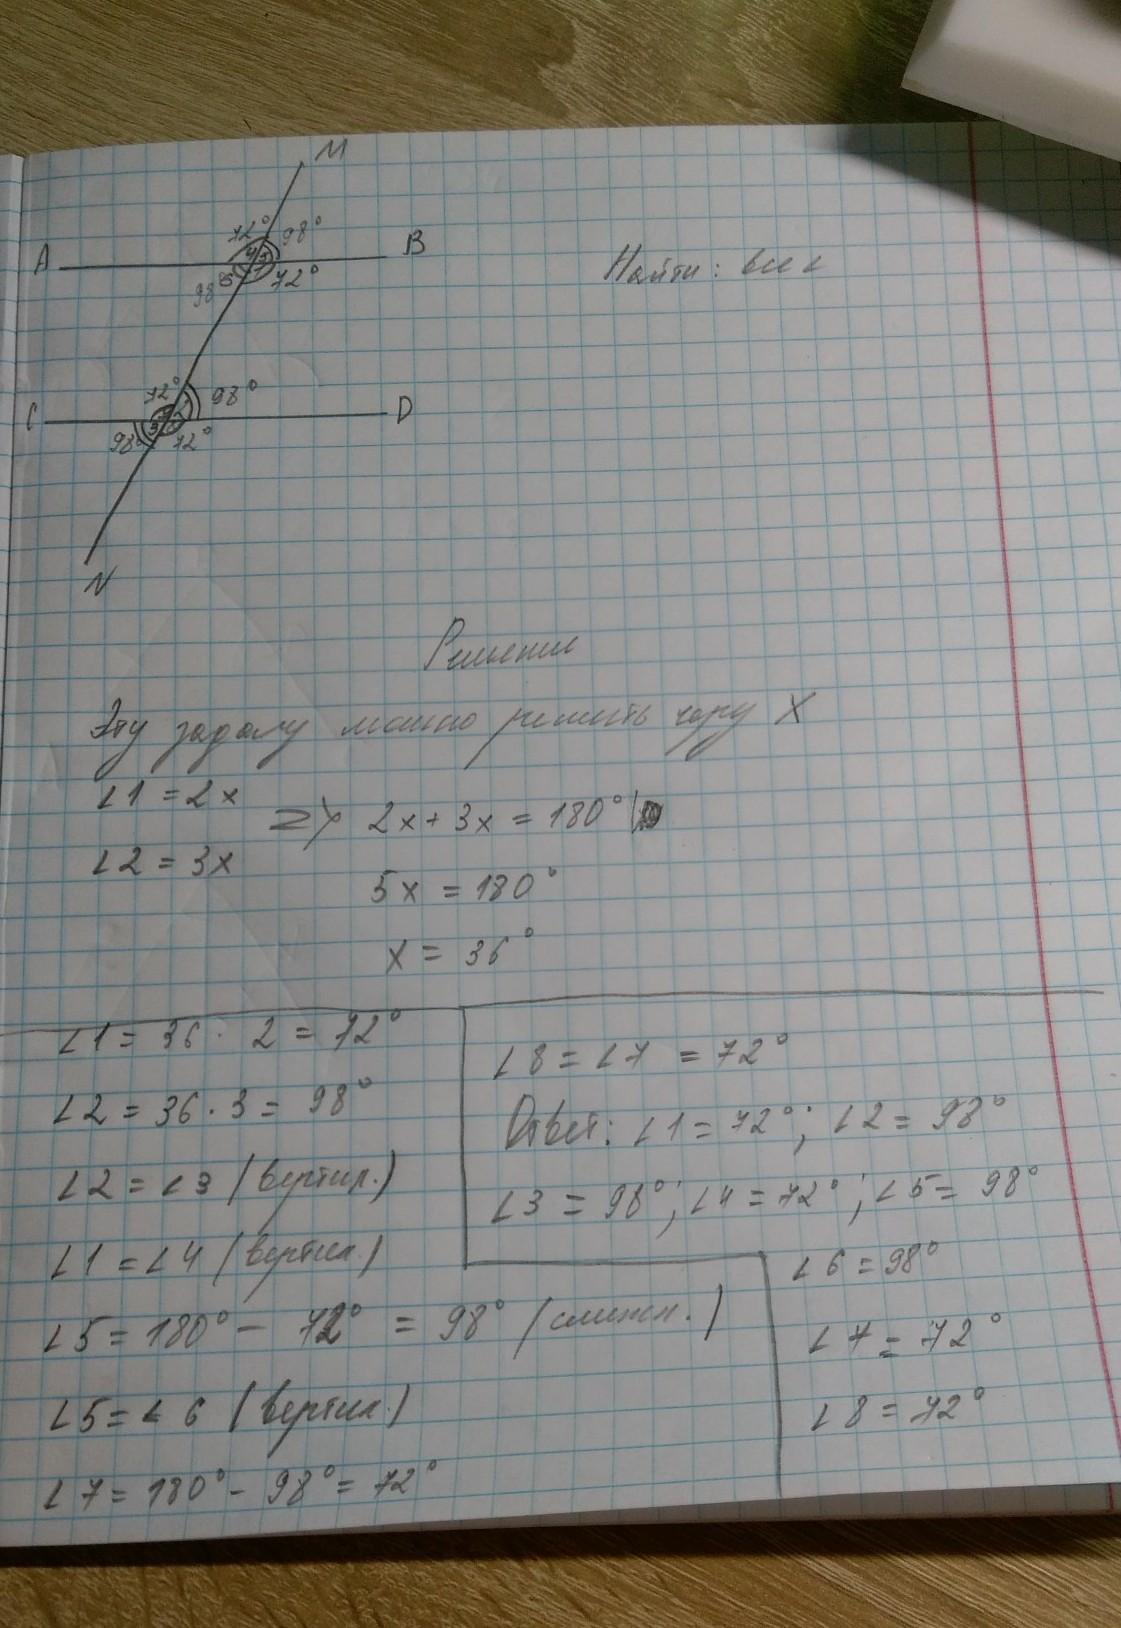 M
72° 98°
A B
4 5
6 7
98° 72°
Найти: все ∠
72° 98°
C D
98° 72°
N
Решение
Эту задачу можно решить через X
∠1 = 2x
=> 2x + 3x = 180°
∠2 = 3x
5x = 180°
x = 36°
∠1 = 36 · 2 = 72°
∠2 = 36 · 3 = 98°
∠2 = ∠3 (вертик.)
∠1 = ∠4 (вертик.)
∠5 = 180° - 72° = 98° (смежн.)
∠5 = ∠6 (вертик.)
∠7 = 180° - 98° = 72°
∠8 = ∠7 = 72°
Ответ: ∠1 = 72°; ∠2 = 98°
∠3 = 98°; ∠4 = 72°; ∠5 = 98°
∠6 = 98°
∠7 = 72°
∠8 = 72°